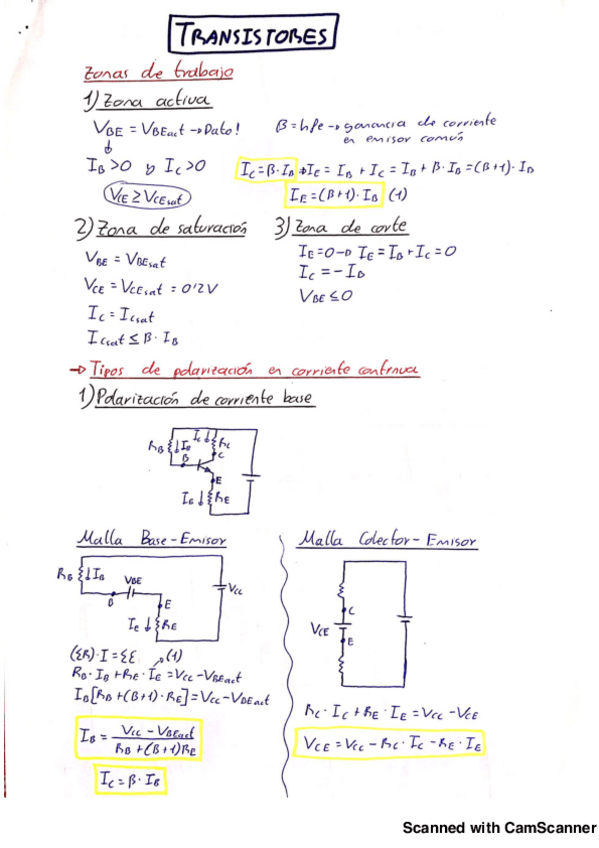 TRANSISTORES
Zonas de trabajo
1) Zona activa
V_BE = V_BEact → Dato!
β = hfe → ganancia de corriente
en emisor común
I_B > 0 y I_C > 0
I_C = β · I_B → I_E = I_B + I_C = I_B + β · I_B = (β+1) · I_B
V_CE ≥ V_CEsat
I_E = (β+1) · I_B (1)
2) Zona de saturación
V_BE = V_BEsat
V_CE = V_CEsat = 0'2V
I_C = I_Csat
I_Csat ≤ β · I_B
3) Zona de corte
I_E = 0 → I_E = I_B + I_C = 0
I_C = - I_B
V_BE ≤ 0
→ Tipos de polarización en corriente continua
1) Polarización de corriente base
I_C R_C
R_B I_B C
B
E
I_E R_E
Malla Base-Emisor
R_B I_B V_BE V_CC
B E
I_E R_E
(ΣR) · I = Σε (1)
R_B · I_B + R_E · I_E = V_CC - V_BEact
I_B [R_B + (β+1) · R_E] = V_CC - V_BEact
I_B = V_CC - V_BEact / R_B + (β+1) R_E
I_C = β · I_B
Malla Colector-Emisor
C
V_CE
E
R_C · I_C + R_E · I_E = V_CC - V_CE
V_CE = V_CC - R_C · I_C - R_E · I_E
Scanned with CamScanner